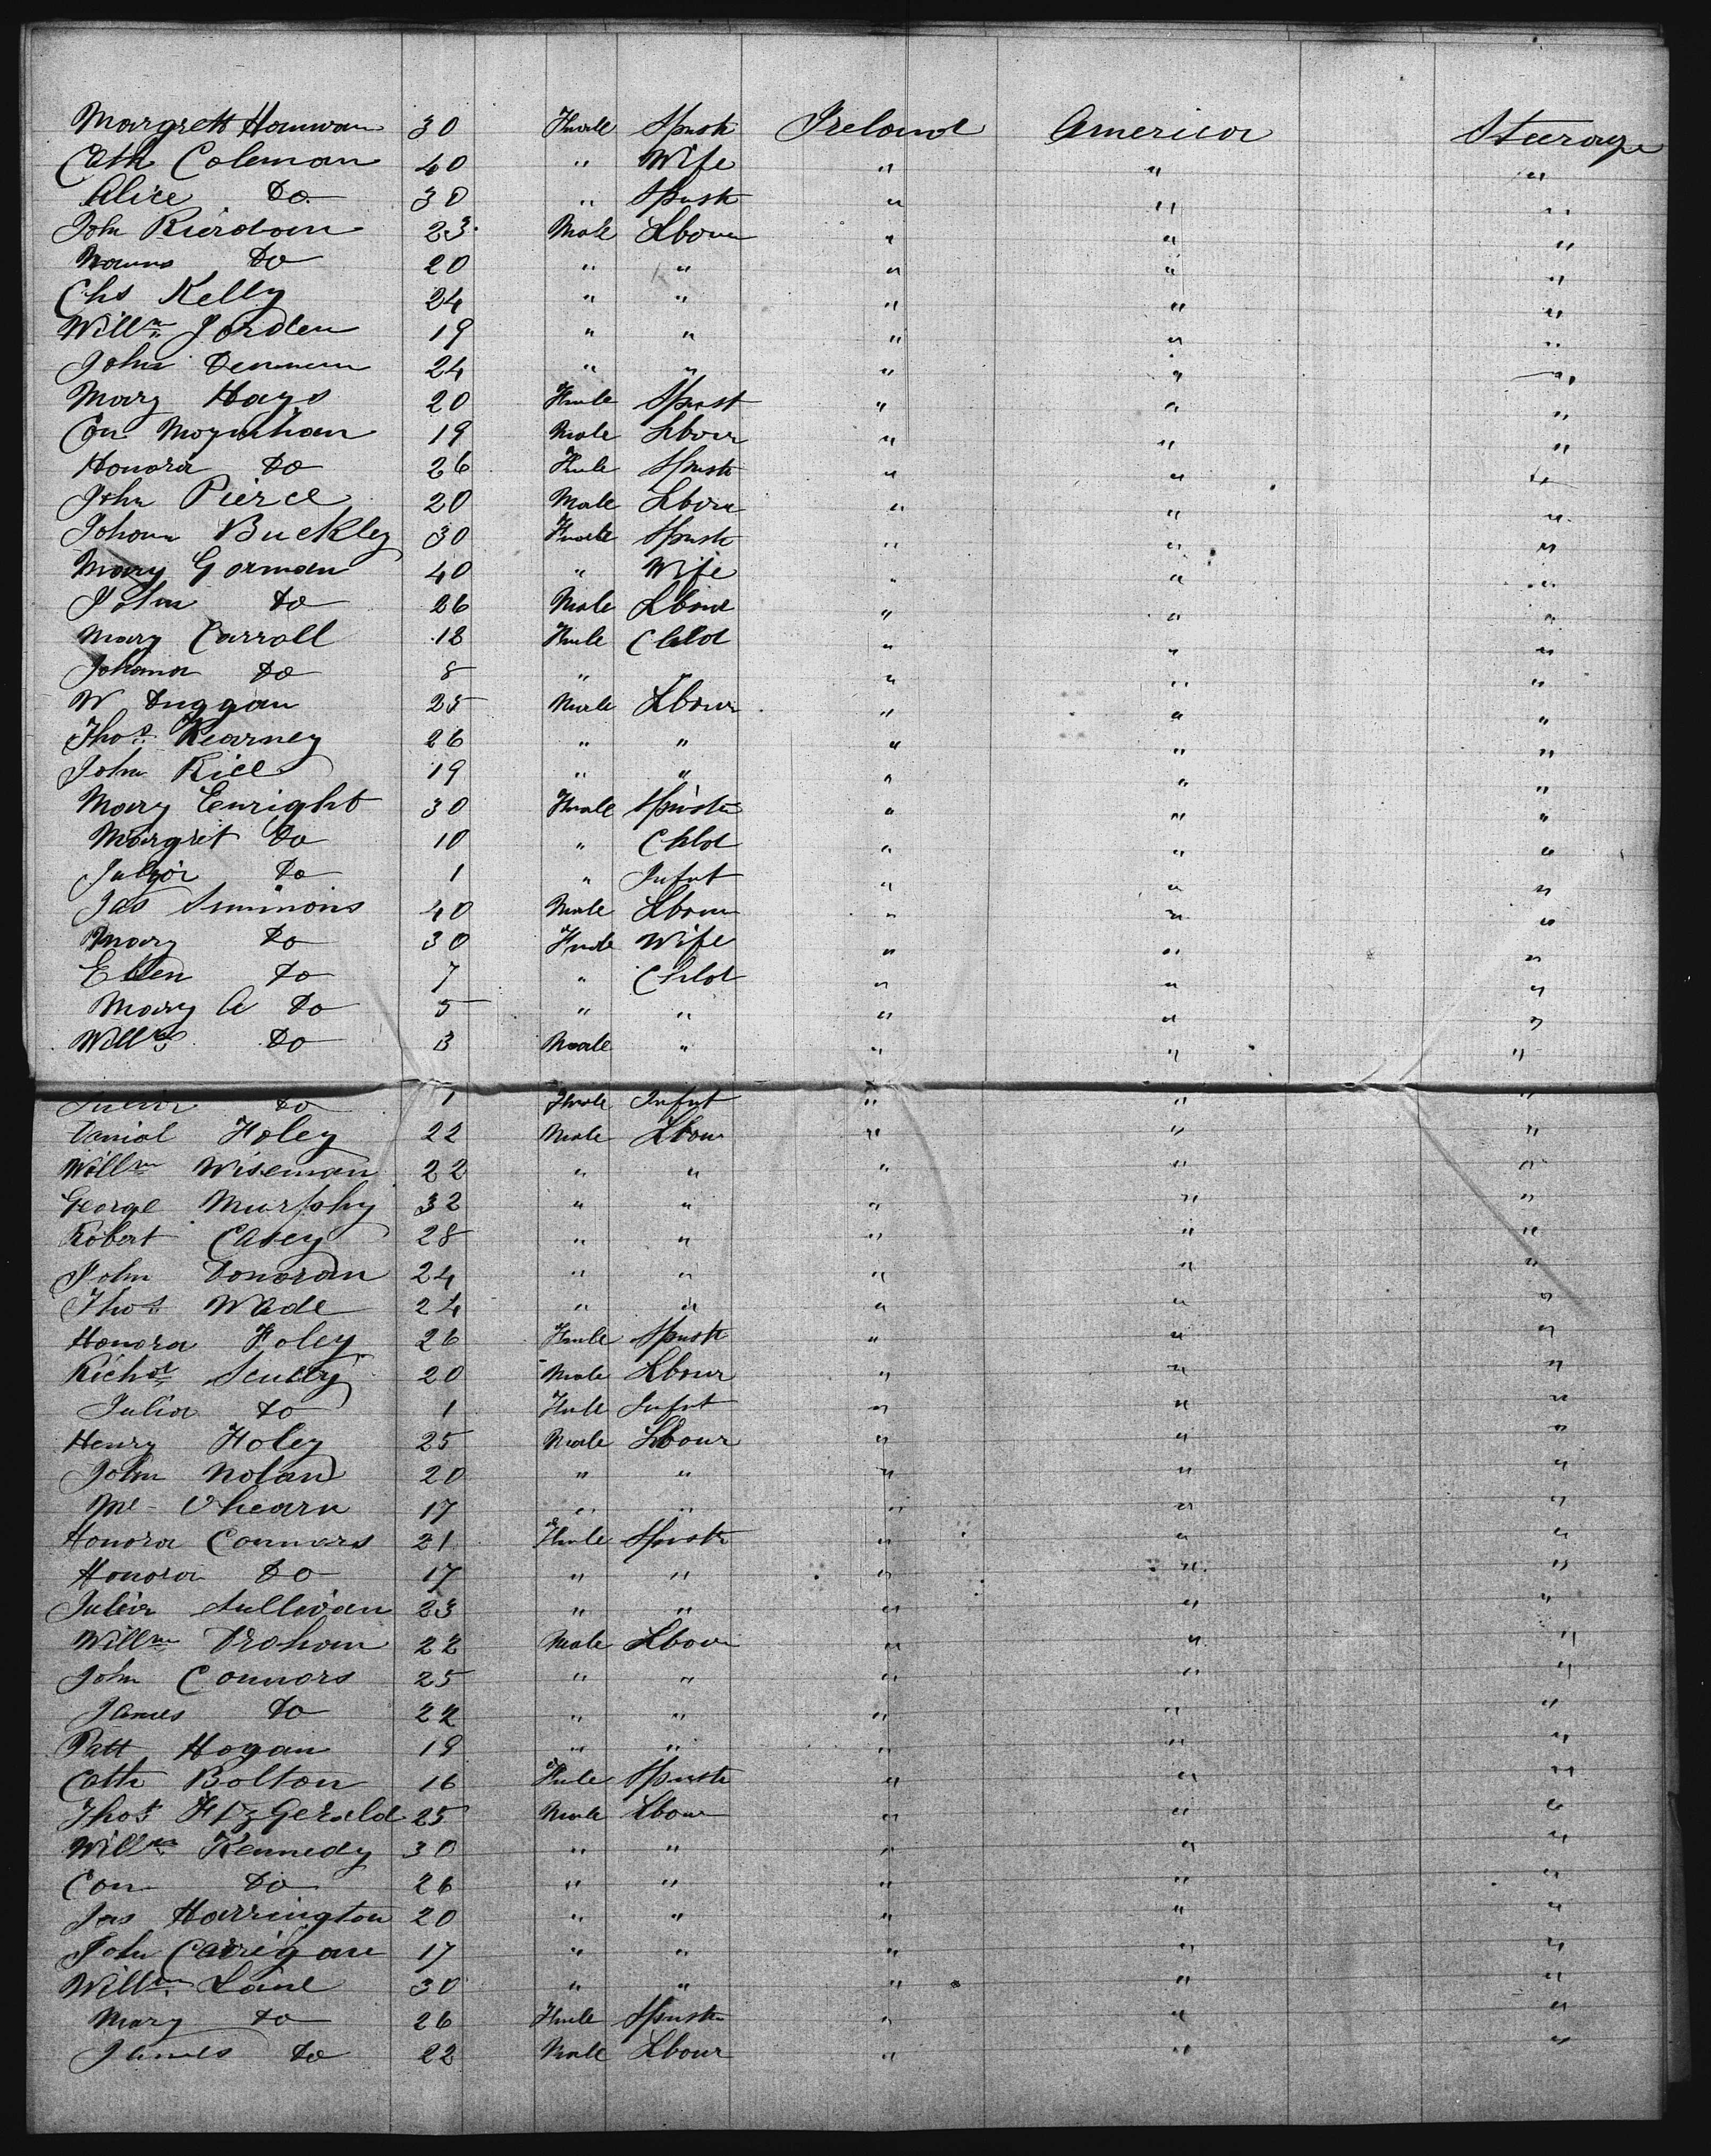 Margrett Hanwan 30 Fmale Spinst Ireland America Steerage
Cath Coleman 40 " Wife " " "
Alice Do 30 " Spinst " " "
John Rierdan 23 Male Lbour " " "
Do 20 " " " " "
Chs Kelly 24 " " " " "
Willm Jorden 19 " " " " "
John 24 " " " " "
Mary Hays 20 Fmle Spinst " " "
Con Moynihan 19 Male Lbour " " "
Honora Do 26 Fmle Spinst " " "
John Pierce 20 Male Lbour " " "
Johana Buckley 30 Fmale Spinst " " "
Mary Gorman 40 " Wife " " "
John Do 26 Male Lbour " " "
Mary Carroll 18 Fmle Child " " "
Johana Do 8 " " " " "
W Duggan 25 Male Lbour " " "
Thos Kearney 26 " " " " "
John Rice 19 " " " " "
Mary Enright 30 Fmale Spinst " " "
Margret Do 10 " Child " " "
Do 1 " Infnt " " "
Jas Simmons 40 Male Lbour " " "
Mary Do 30 Fmle Wife " " "
Ellen Do 7 " Child " " "
Mary A Do 5 " " " " "
Willm Do 3 Male " " " "
Julia Do 1 Fmale Infnt " " "
Danial Foley 22 Male Lbour " " "
Willm Wiseman 22 " " " " "
George Murphy 32 " " " " "
Robert Casey 28 " " " " "
John Donovan 24 " " " " "
Thos Wade 24 " " " " "
Honora Foley 26 Fmle Spinst " " "
Richd Scully 20 Male Lbour " " "
Julia Do 1 Fmle Infnt " " "
Henry Foley 25 Male Lbour " " "
John Nolan 20 " " " " "
Ml Ohearn 17 " " " " "
Honora Connors 21 Fmle Spinst " " "
Honora Do 17 " " " " "
Julia Sullivan 23 " " " " "
Willm Drohan 22 Male Lbour " " "
John Connors 25 " " " " "
James Do 22 " " " " "
Patt Hogan 19 " " " " "
Cath Bolton 16 Fmle Spinst " " "
Thos FitzGerald 25 Male Lbour " " "
Willm Kennedy 30 " " " " "
Con Do 26 " " " " "
Jas Harrington 20 " " " " "
John Carrigan 17 " " " " "
Willm Lane 30 " " " " "
Mary Do 26 Fmle Spinst " " "
James Do 22 Male Lbour " " "